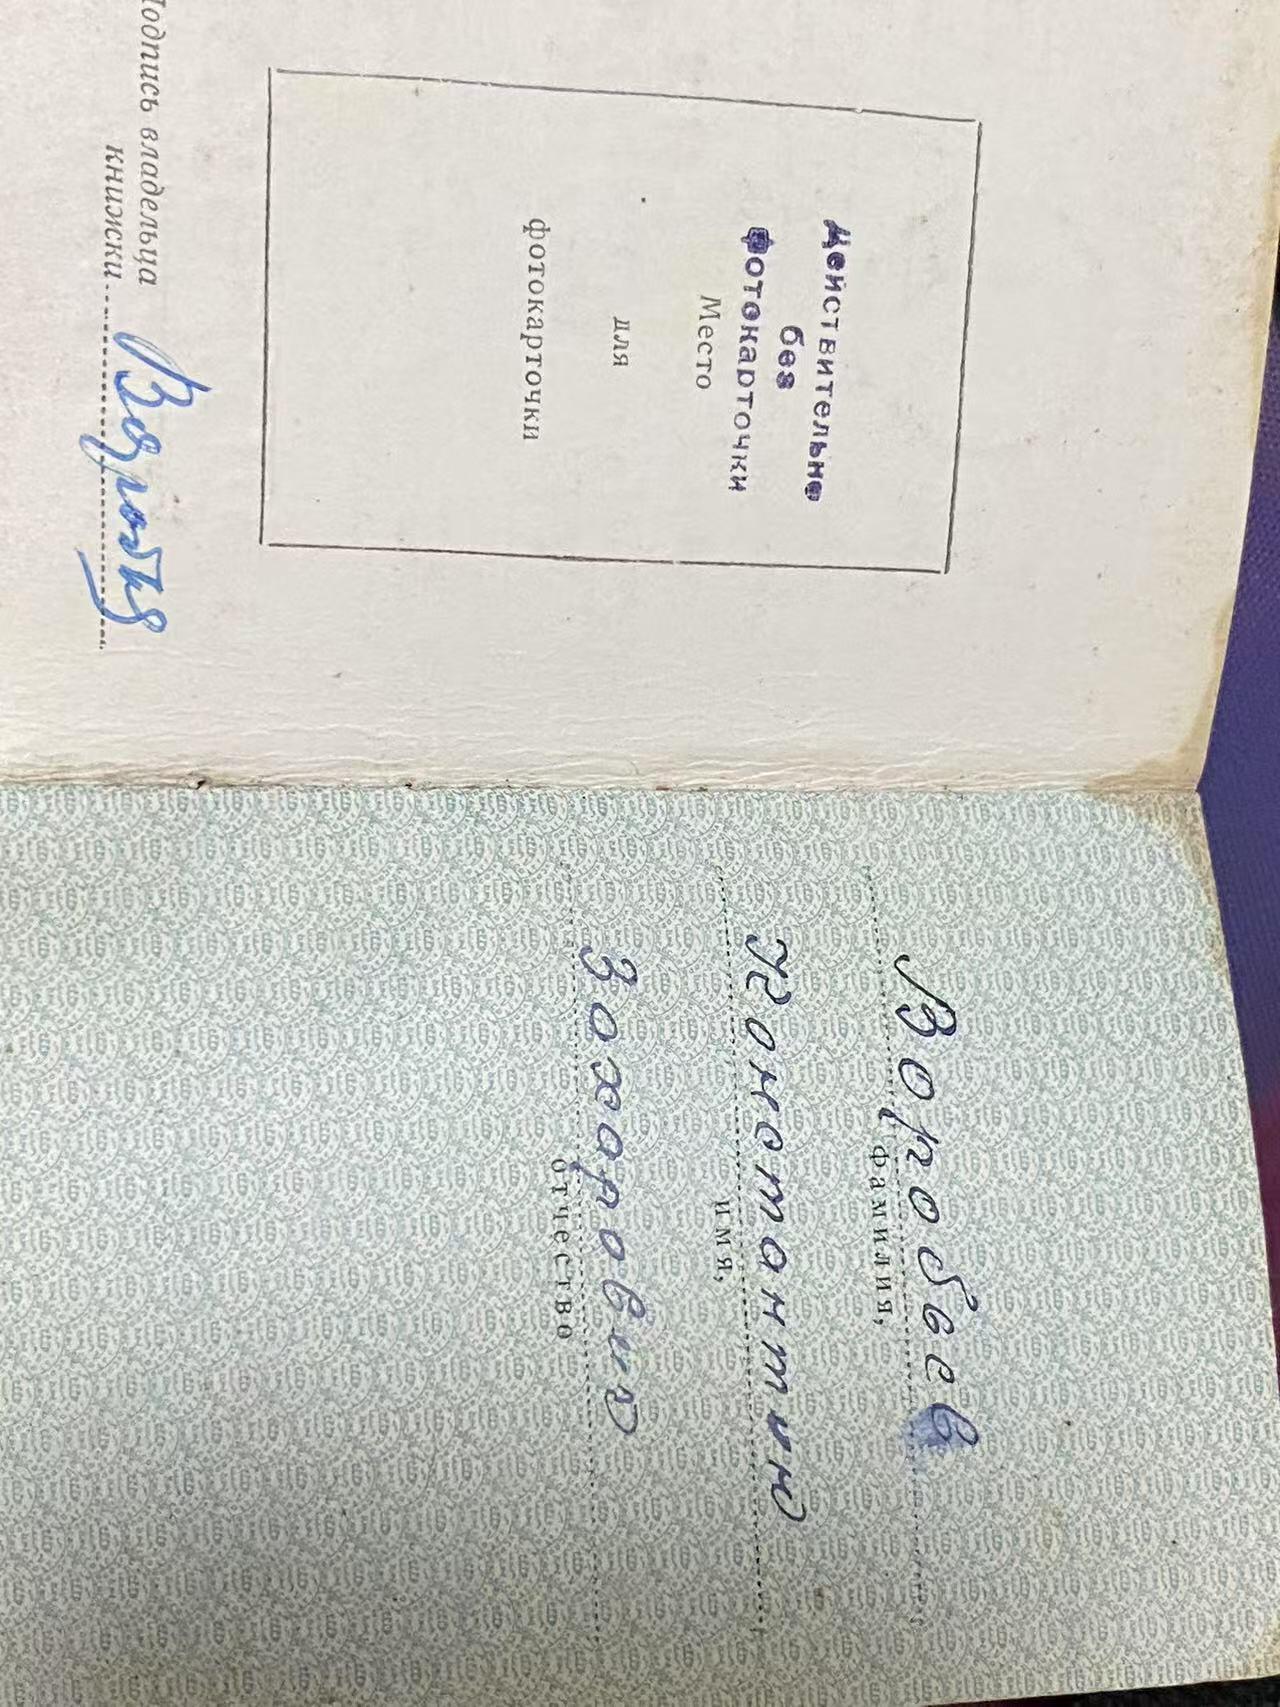 Действительно
без
фотокарточки
Место
для
фотокарточки
Подпись владельца
книжки
Воробьев
фамилия,
Константин
имя,
Захарович
отчество